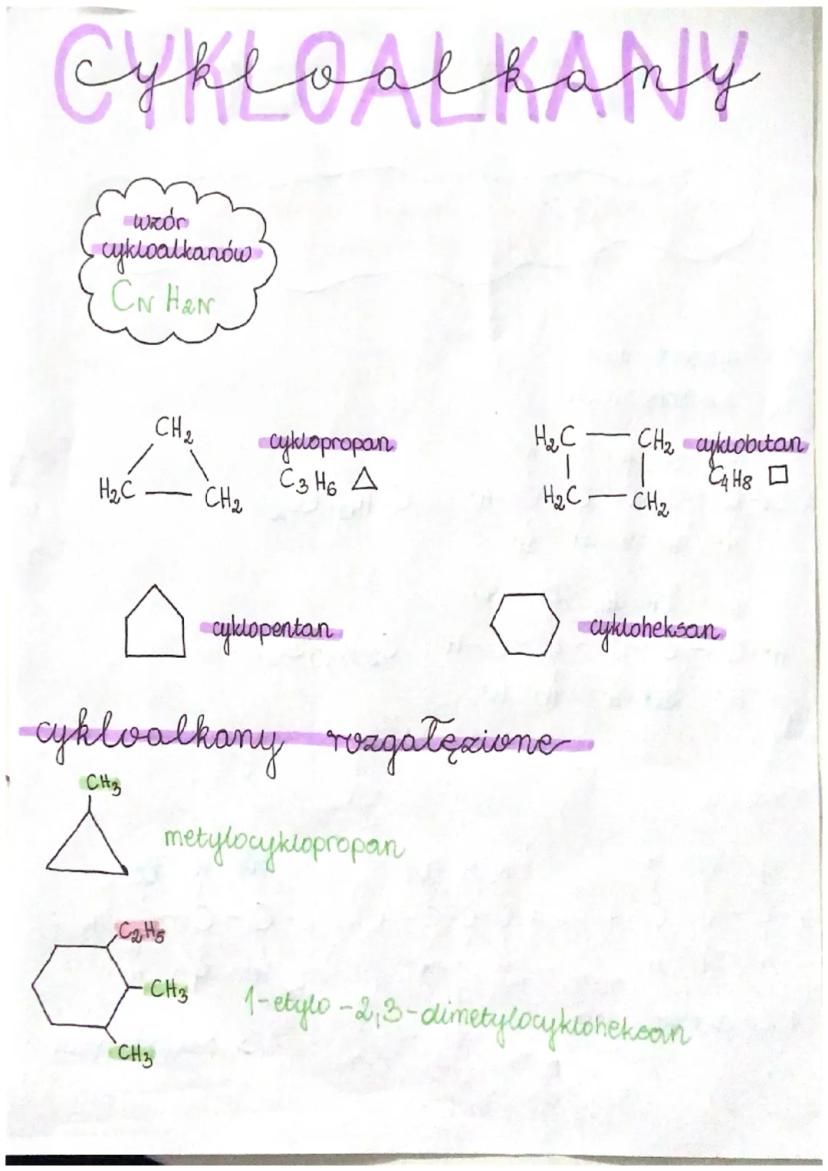 CYKLOALKANY
cykloalkany
wzór
cykloalkanów
CN H2N
CH2
H2C — CH2
cyklopropan
C3 H6
H2C — CH2
H2C — CH2
cyklobutan
C4 H8
cyklopentan
cykloheksan
cykloalkany rozgałęzione
CH3
metylocyklopropan
C2H5
CH3
CH3
1-etylo-2,3-dimetylocykloheksan